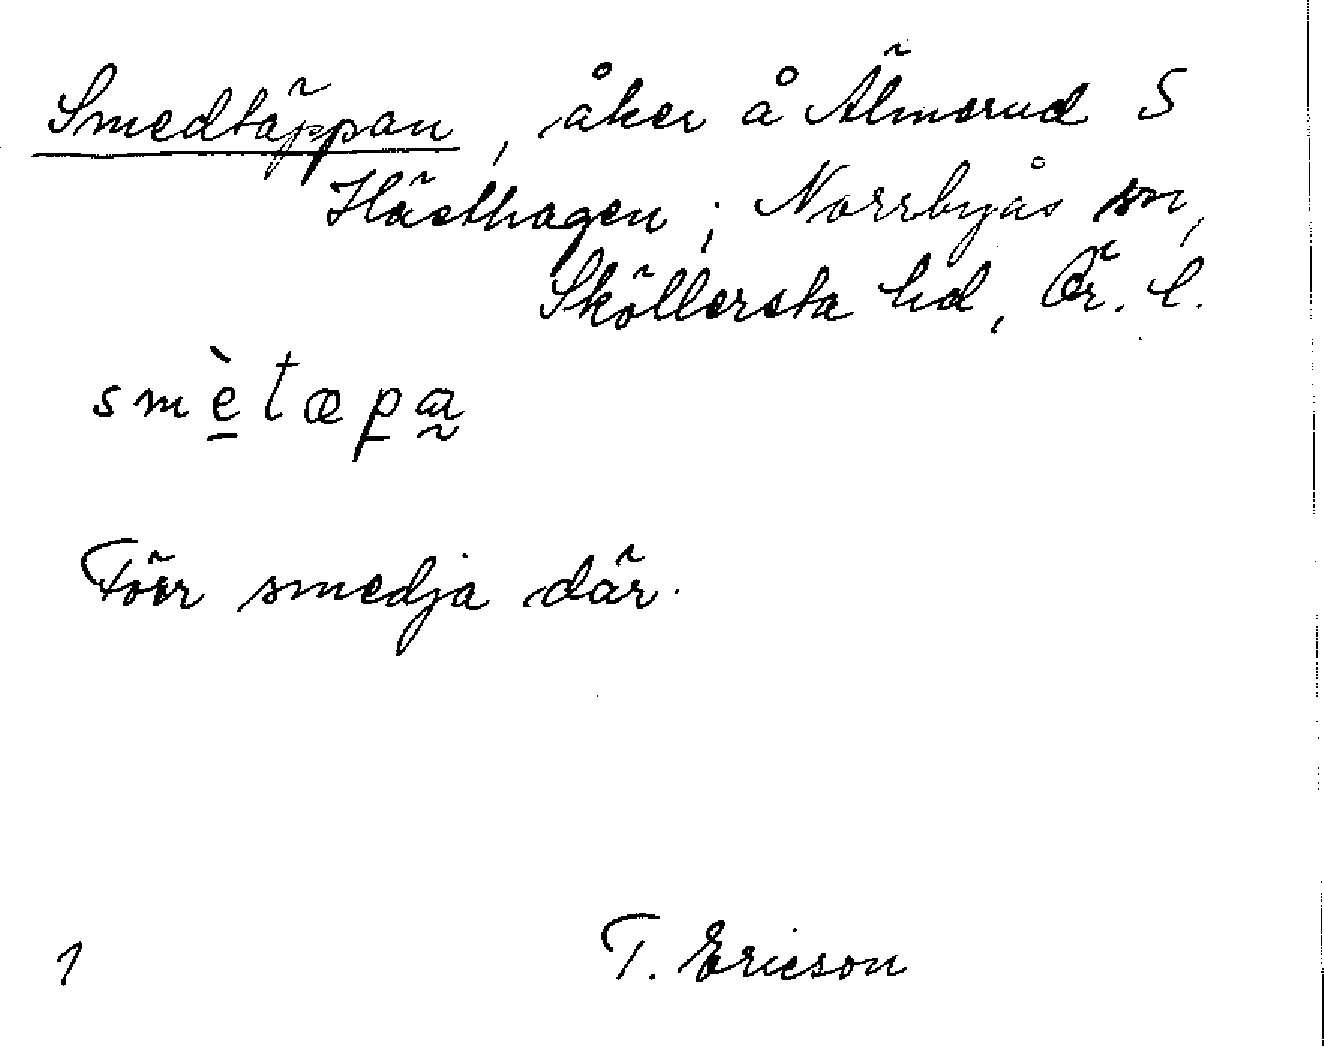 Smedtäppan, åker å Älmerud S
Hästhagen; Norrbyås sn,
Sköllersta hd, Ör. l.
smè̠tæp̠a̰
Förr smedja där.
1 T. Ericson